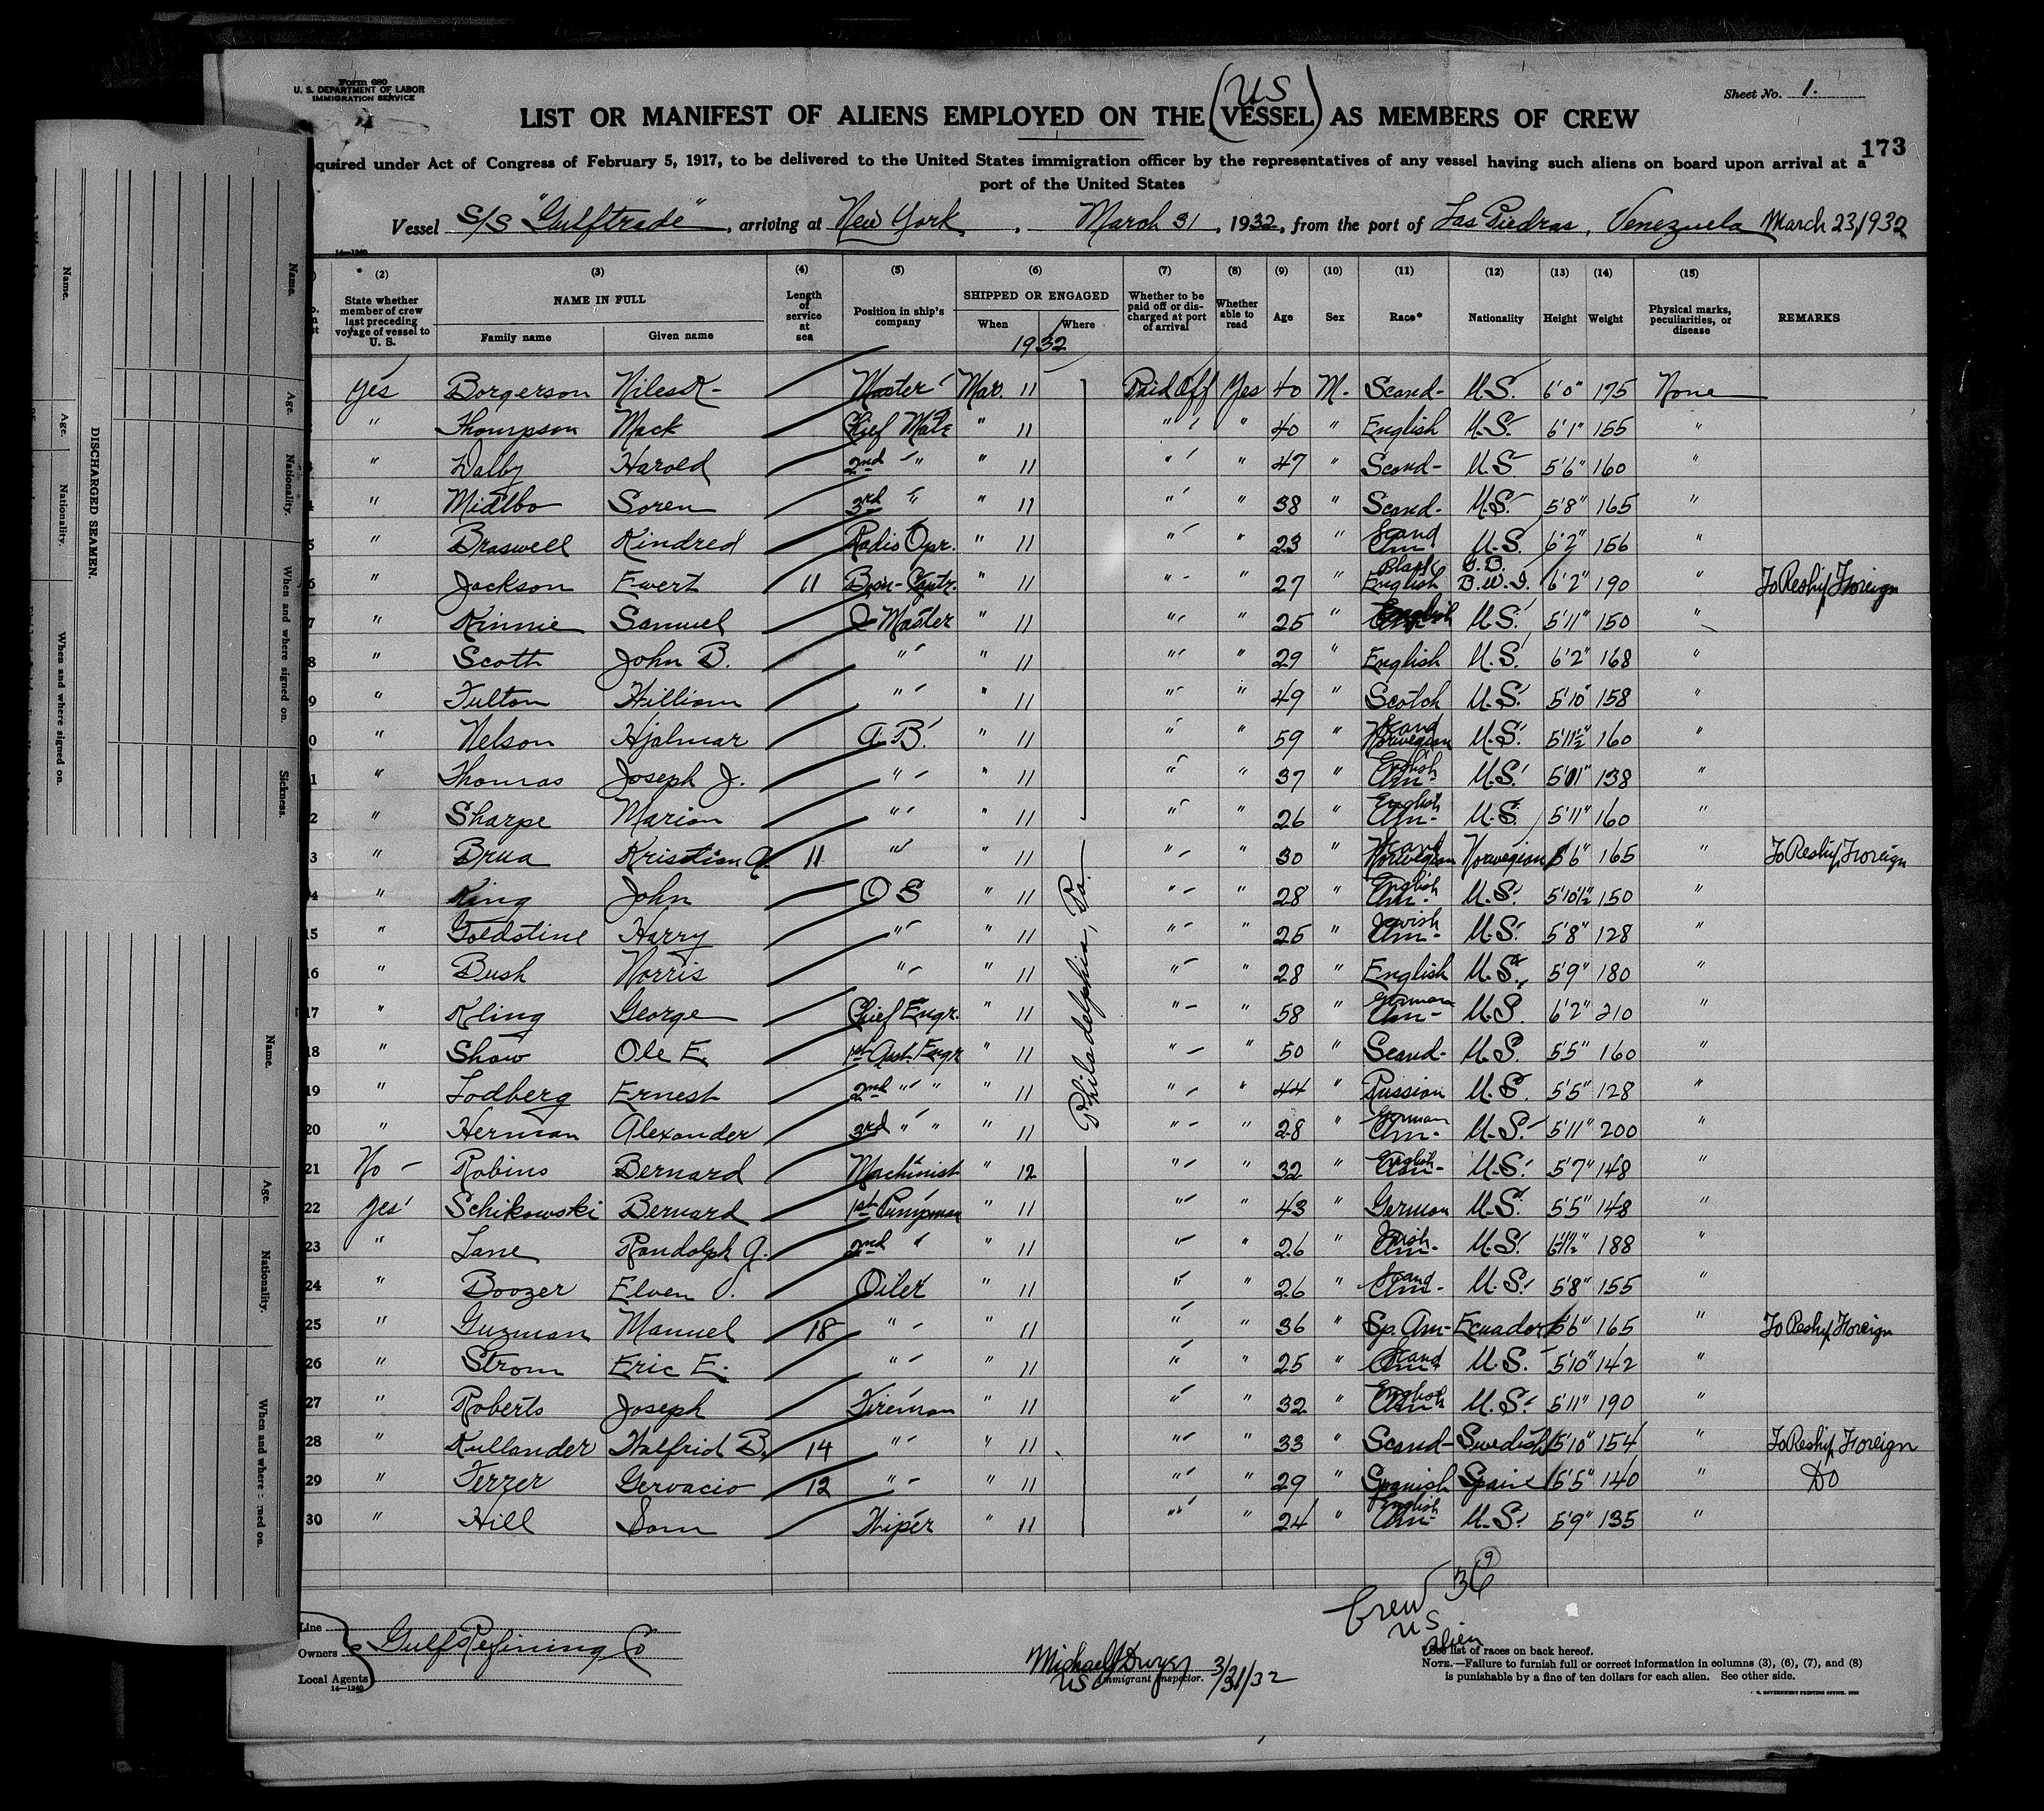 Form 680
U. S. DEPARTMENT OF LABOR
IMMIGRATION SERVICE
Sheet No. 1.
US
LIST OR MANIFEST OF ALIENS EMPLOYED ON THE (VESSEL) AS MEMBERS OF CREW
173
quired under Act of Congress of February 5, 1917, to be delivered to the United States immigration officer by the representatives of any vessel having such aliens on board upon arrival at a
port of the United States
Vessel S/S "Gulftrade", arriving at New York, March 31, 1932, from the port of Las Piedras, Venezuela March 23, 1932
14-1240
(2) (3) (4) (5) (6) (7) (8) (9) (10) (11) (12) (13) (14) (15)
State whether member of crew last preceding voyage of vessel to U. S.
NAME IN FULL
Family name Given name
Length of service at sea
Position in ship's company
SHIPPED OR ENGAGED
When Where
1932
Whether to be paid off or discharged at port of arrival
Whether able to read
Age Sex Race* Nationality Height Weight
Physical marks, peculiarities, or disease
REMARKS
Yes Borgerson Niles K- Master Mar. 11 Paid Off Yes 40 M. Scand- U.S. 6'0" 175 None
" Thompson Mack Chief Mate " 11 " " 40 " English U.S. 6'1" 155 "
" Dalby Harold 2nd " " 11 " " 47 " Scand- U.S 5'6" 160 "
" Midlbo Soren 3rd " " 11 " " 38 " Scand- U.S. 5'8" 165 "
5 " Braswell Kindred Radio Opr. " 11 " " 23 " Scand Am U.S. 6'2" 156 "
6 " Jackson Ewert 11 Bosn-Cptr. " 11 " " 27 " Black English G.B. B.W.I. 6'2" 190 " To Reship Foreign
7 " Kinnie Samuel Q Master " 11 " " 25 " English U.S. 5'11" 150 "
8 " Scott John B. " " 11 " " 29 " English U.S. 6'2" 168 "
9 " Fulton William " " 11 " " 49 " Scotch U.S. 5'10" 158 "
0 " Nelson Hjalmar A.B. " 11 " " 59 " Scand Norwegian U.S. 5'11½" 160 "
1 " Thomas Joseph J. " " 11 " " 37 " English Am- U.S. 138 "
2 " Sharpe Marion " " 11 " " 26 " English Am- U.S. 5'11" 160 "
3 " Brua Kristian A 11 " " 11 " " 30 " Scand Norwegian Norwegian 5'6" 165 " To Reship Foreign
4 " King John O S " 11 " " 28 " English Am- U.S. 5'10½" 150 "
15 " Goldstine Harry " " 11 " " 25 " Jewish Am- U.S. 5'8" 128 "
16 " Bush Norris " " 11 " " 28 " English U.S. 5'9" 180 "
17 " Kling George Chief Engr. " 11 " " 58 " German Am- U.S. 6'2" 210 "
18 " Shaw Ole E. 1st Asst. Engr " 11 " " 50 " Scand- U.S. 5'5" 160 "
19 " Lodberg Ernest 2nd " " " 11 " " 44 " Russian U.S. 5'5" 128 "
20 " Herman Alexander 3rd " " " 11 " " 28 " German Am- U.S. 5'11" 200 "
21 No - Robins Bernard Machinist " 12 " " 32 " English Am- U.S. 5'7" 148 "
22 Yes Schikowski Bernard 1st Pumpman " 11 " " 43 " German U.S. 5'5" 148 "
23 " Lane Randolph G. 2nd " " 11 " " 26 " Irish Am- U.S. 188 "
24 " Boozer Elven Oiler " 11 " " 26 " Scand Am- U.S. 5'8" 155 "
25 " Guzman Manuel 18 " " 11 " " 36 " Sp. Am- Ecuador 5'6" 165 " To Reship Foreign
26 " Strom Eric E. " " 11 " " 25 " Scand Am U.S. 5'10" 142 "
27 " Roberts Joseph Fireman " 11 " " 32 " English Am U.S. 5'11" 190 "
28 " Kullander Walfrid B. 14 " " 11 " " 33 " Scand- Swedish 5'10" 154 " To Reship Foreign
29 " Ferrer Gervacio 12 " " 11 " " 29 " Spanish Spain 5'5" 140 " Do
30 " Hill Sam Wiper " 11 " " 24 " English Am- U.S. 5'9" 135 "
Philadelphia, Pa.
Crew 36
9
US
Alien
Line
Owners Gulf Refining Co
Local Agents
14-1240
Michael J Dwyer 3/31/32
US Immigrant Inspector.
*See list of races on back hereof.
NOTE.—Failure to furnish full or correct information in columns (3), (6), (7), and (8)
is punishable by a fine of ten dollars for each alien. See other side.
DISCHARGED SEAMEN.
Name. Age. Nationality. When and where signed on. Sickness.
Name. Age. Nationality. When and where signed on.
Name. Age. Nationality. When and where signed on.